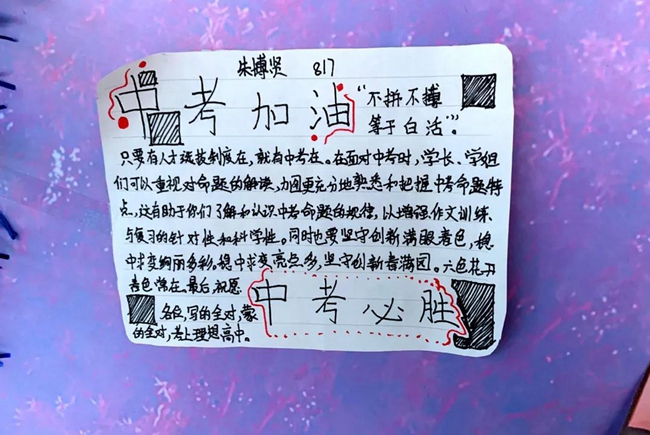 朱博贤 817
中考加油 "不拼不搏
等于白活"。
只要有人才选拔制度在，就有中考在。在面对中考时，学长、学姐
们可以重视对命题的解读，力图更充分地熟悉和把握中考命题特
点，这有助于你们了解和认识中考命题的规律，以增强作文训练
与复习的针对性和科学性。同时也要坚守创新满眼春色，稳
中求变绚丽多彩。稳中求变亮点多，坚守创新春满园。六色花开
春色常在。最后，祝愿
中考必胜
各位，写的全对，蒙
的全对，考上理想高中。